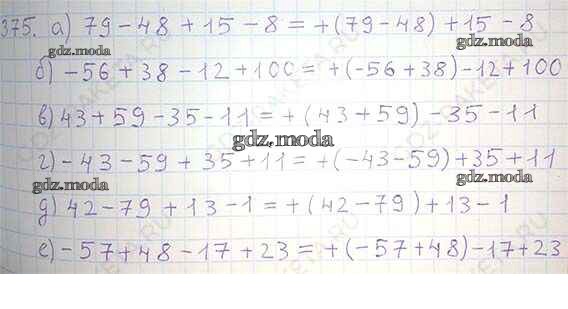 375. а) 79 - 48 + 15 - 8 = +(79 - 48) + 15 - 8
gdz.moda
gdz.moda
б) -56 + 38 - 12 + 100 = +(-56 + 38) - 12 + 100
в) 43 + 59 - 35 - 11 = +(43 + 59) - 35 - 11
gdz.moda
г) -43 - 59 + 35 + 11 = +(-43 - 59) + 35 + 11
gdz.moda
gdz.moda
д) 42 - 79 + 13 - 1 = +(42 - 79) + 13 - 1
е) -57 + 48 - 17 + 23 = +(-57 + 48) - 17 + 23